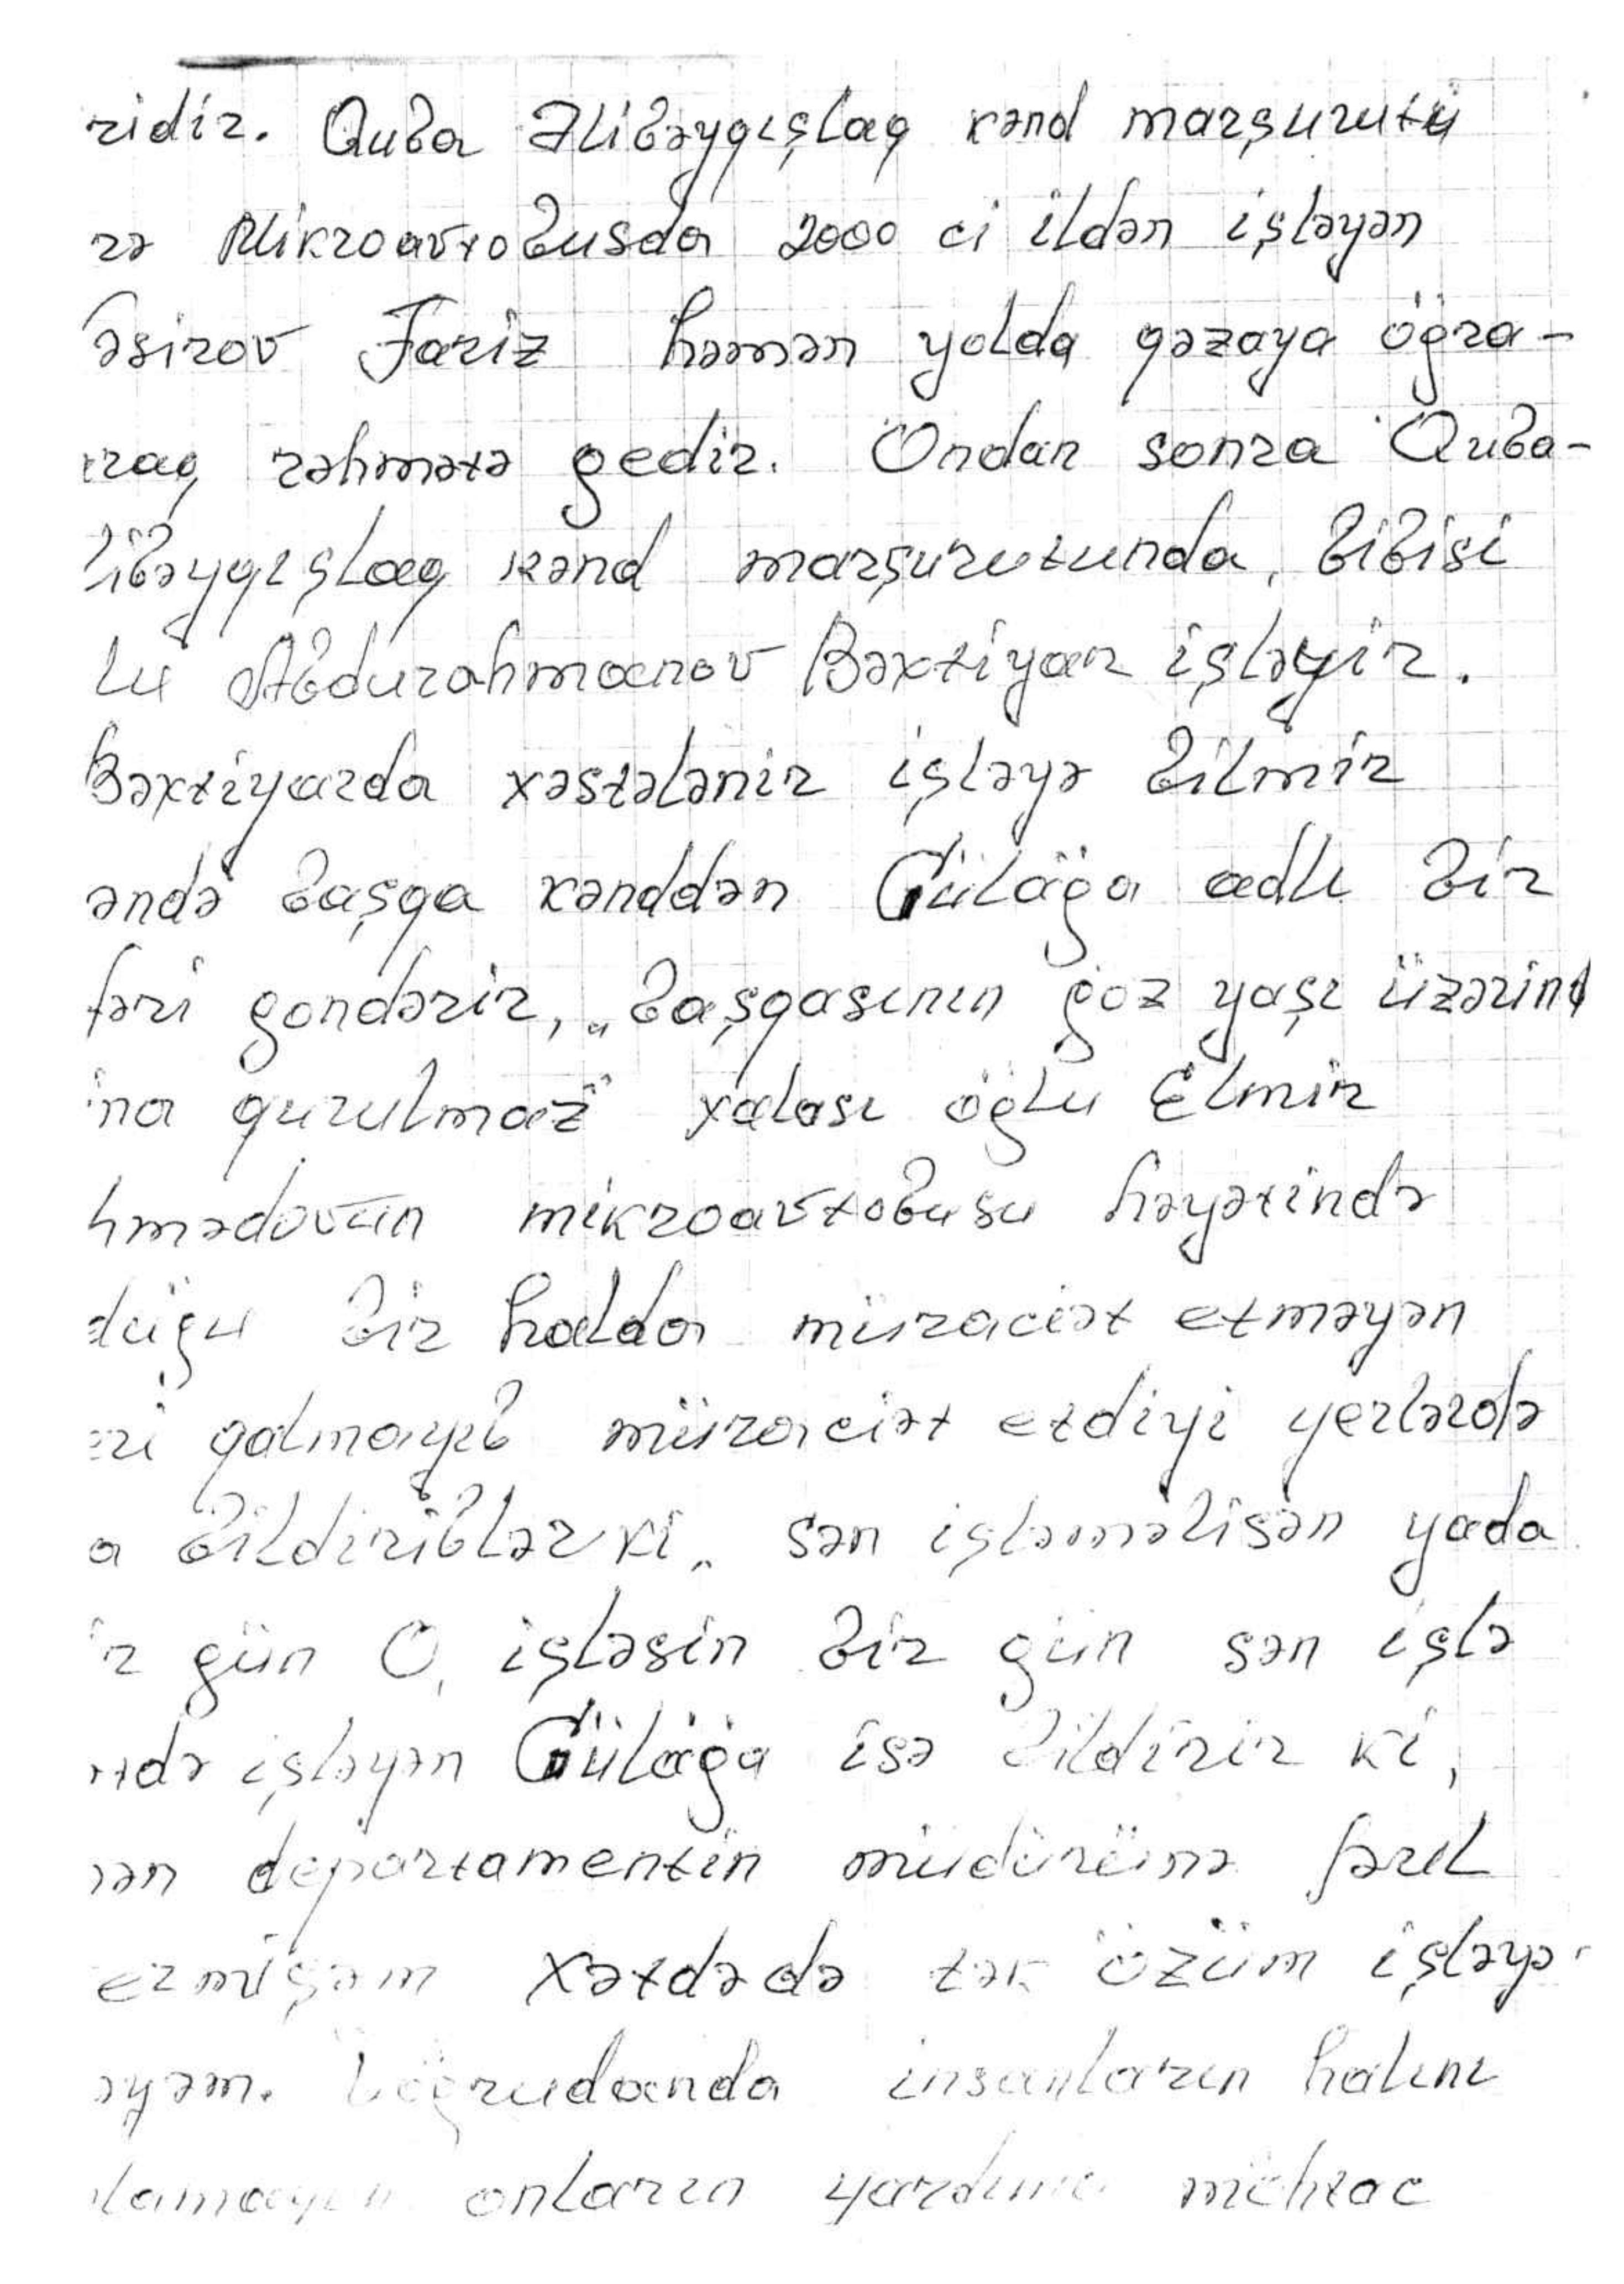 ridir. Quba Əlibəyqışlaq kənd marşurutu
rə Mikroavtobusda 2000 ci ildən işləyən
əsirov Fariz həmən yolda qəzaya öğra-
raq rəhmətə gedir. Ondan sonra Quba-
libəyqışlaq kənd marşurutunda, bibisi
lu Abdurahmanov Bəxtiyar işləyir.
Bəxtiyarda xəstələnir işləyə bilmir
əndə başqa kənddən Gülağa adlı bir
fəri gondərir, „başqasının göz yaşı üzərind
ina qurulmaz" xalası öğlu Elmir
hmədovun mikroavtobusu həyətində
duğu bir halda müraciət etməyən
eri qalmayıb müraciət etdiyi yerlərdə
a bildiriblər ki„ sən işləməlisən yada
ir gün O, işləsin bir gün sən işlə
tdə işləyən Gülağa isə bildirir ki,
ən departamentin müdürünə pul
ermişəm xətdədə tək özüm işləyə
əyəm. Döğrudanda insanların halını
lamayın onların yardıma möhtac